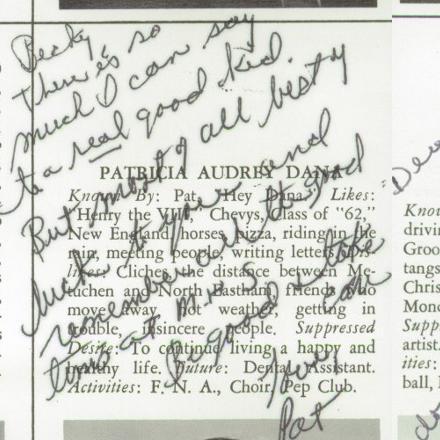 Becky,
There's so
much I can say
to a real good kid.
But most of all best of
luck to you and
remember all the good
times at M.H.S.
Be good & take
care
Love,
Pat
PATRICIA AUDREY DANA
Known By: Pat, "Hey Dana." Likes:
"Henry the VIII," Chevys, Class of "62,"
New England, horses, pizza, riding in the
rain, meeting people, writing letters. Dis-
likes: Cliches, the distance between Me-
tuchen and North Eastham, friends who
move away, hot weather, getting in
trouble, insincere people. Suppressed
Desire: To continue living a happy and
healthy life. Future: Dental Assistant.
Activities: F. N. A., Choir, Pep Club.
Dear
Know
drivin
Groo
tangs
Chris
Mon
Supp
artist.
ities:
ball,